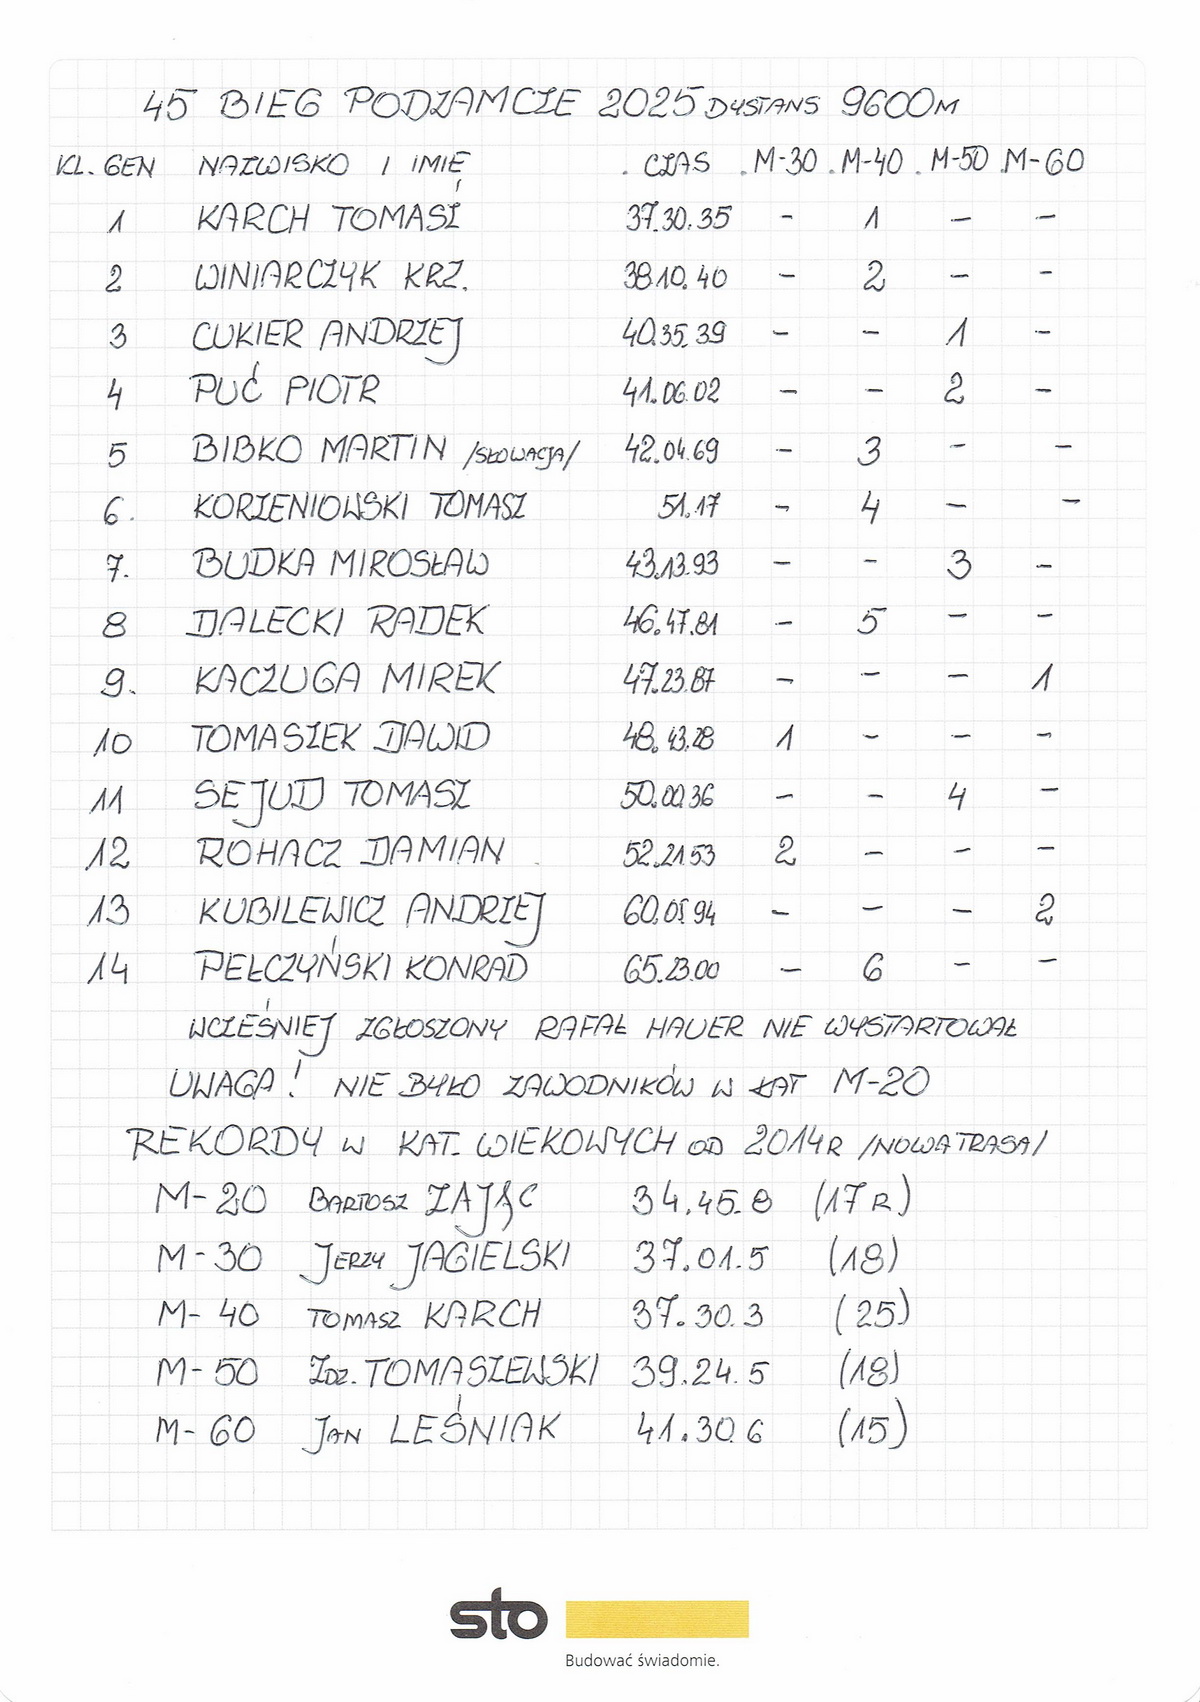 45 BIEG PODZAMCZE 2025 DYSTANS 9600M
KL. GEN NAZWISKO I IMIĘ . CZAS . M-30 . M-40 . M-50 . M-60
1 KARCH TOMASZ 37.30.35 - 1 - -
2 WINIARCZYK KRZ. 38.10.40 - 2 - -
3 CUKIER ANDRZEJ 40.35.39 - - 1 -
4 PUĆ PIOTR 41.06.02 - - 2 -
5 BIBKO MARTIN /SŁOWACJA/ 42.04.69 - 3 - -
6. KORZENIOWSKI TOMASZ 51.17 - 4 - -
7. BUDKA MIROSŁAW 43.13.93 - - 3 -
8 DALECKI RADEK 46.47.81 - 5 - -
9. KACZUGA MIREK 47.23.87 - - - 1
10 TOMASZEK DAWID 48.43.28 1 - - -
11 SEJUD TOMASZ 50.00.36 - - 4 -
12 ROHACZ DAMIAN 52.21.53 2 - - -
13 KUBILEWICZ ANDRZEJ 60.05.94 - - - 2
14 PEŁCZYŃSKI KONRAD 65.23.00 - 6 - -
WCZEŚNIEJ ZGŁOSZONY RAFAŁ HAUER NIE WYSTARTOWAŁ
UWAGA! NIE BYŁO ZAWODNIKÓW W KAT M-20
REKORDY W KAT. WIEKOWYCH OD 2014R /NOWA TRASA/
M-20 BARTOSZ ZAJĄC 34.45.8 (17R)
M-30 JERZY JAGIELSKI 37.01.5 (18)
M-40 TOMASZ KARCH 37.30.3 (25)
M-50 ZDZ. TOMASZEWSKI 39.24.5 (18)
M-60 JAN LEŚNIAK 41.30.6 (15)
sto
Budować świadomie.